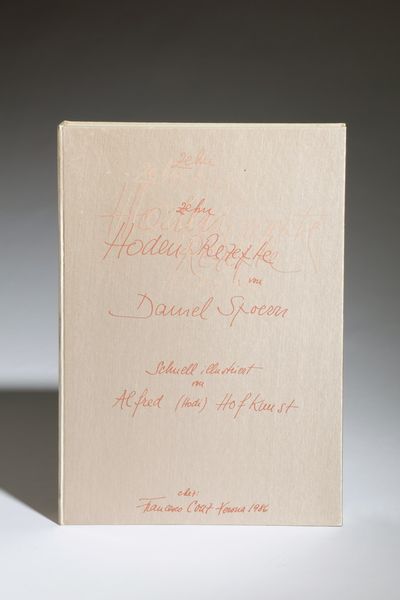 zehn
zehn
Hoden Rezepte
von
Daniel Spoerri
Schnell illustriert
von
Alfred (Hodi) Hofkunst
chez:
Francesco Conz Verona 1986